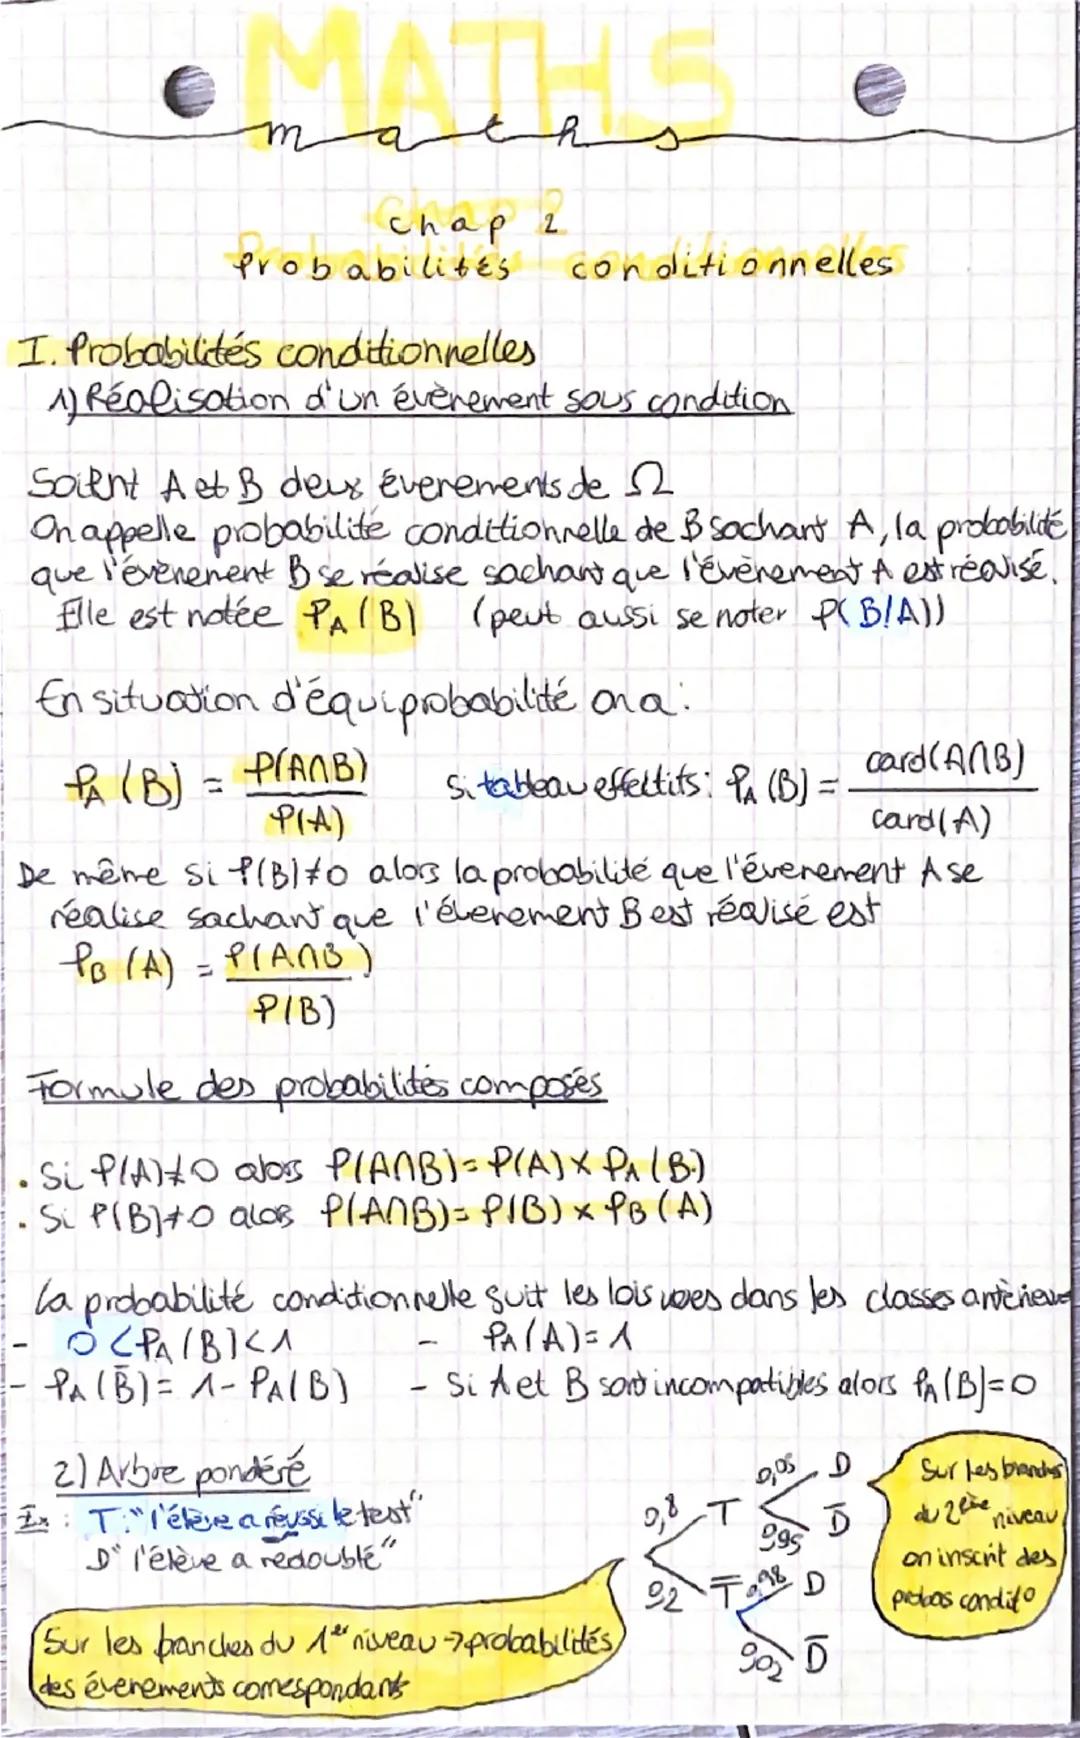 MATHS
maths
chap 2
Probabilités conditionnelles
I. Probabilités conditionnelles
1) Réalisation d'un évènement sous condition
Soient A et B deux évenements de Ω
On appelle probabilité conditionnelle de B sachant A, la probabilité
que l'évènement B se réalise sachant que l'évènement A est réalisé.
Elle est notée PA(B) (peut aussi se noter P(B/A))
En situation d'équiprobabilité on a:
PA(B) = P(A∩B) / P(A) Si tableau effectifs: PA(B) = card(A∩B) / card(A)
De même si P(B)≠0 alors la probabilité que l'évenement A se
réalise sachant que l'évenement B est réalisé est
PB(A) = P(A∩B) / P(B)
Formule des probabilités composés
. Si P(A)≠0 alors P(A∩B)=P(A)×PA(B)
. Si P(B)≠0 alors P(A∩B)=P(B)×PB(A)
La probabilité conditionnelle suit les lois vues dans les classes antérieures
- 0<PA(B)<1 - PA(A)=1
- PA(B̄)=1-PA(B) - Si A et B sont incompatibles alors PA(B)=0
2) Arbre pondéré
Ex: T:"l'élève a réussi le test"
D"l'élève a redoublé"
0,8 T 0,05 D
0,95 D̄
0,2 T̄ 0,98 D
0,02 D̄
Sur les branches
du 2ème niveau
on inscrit des
probas condit°
Sur les branches du 1er niveau → probabilités
des évenements correspondants